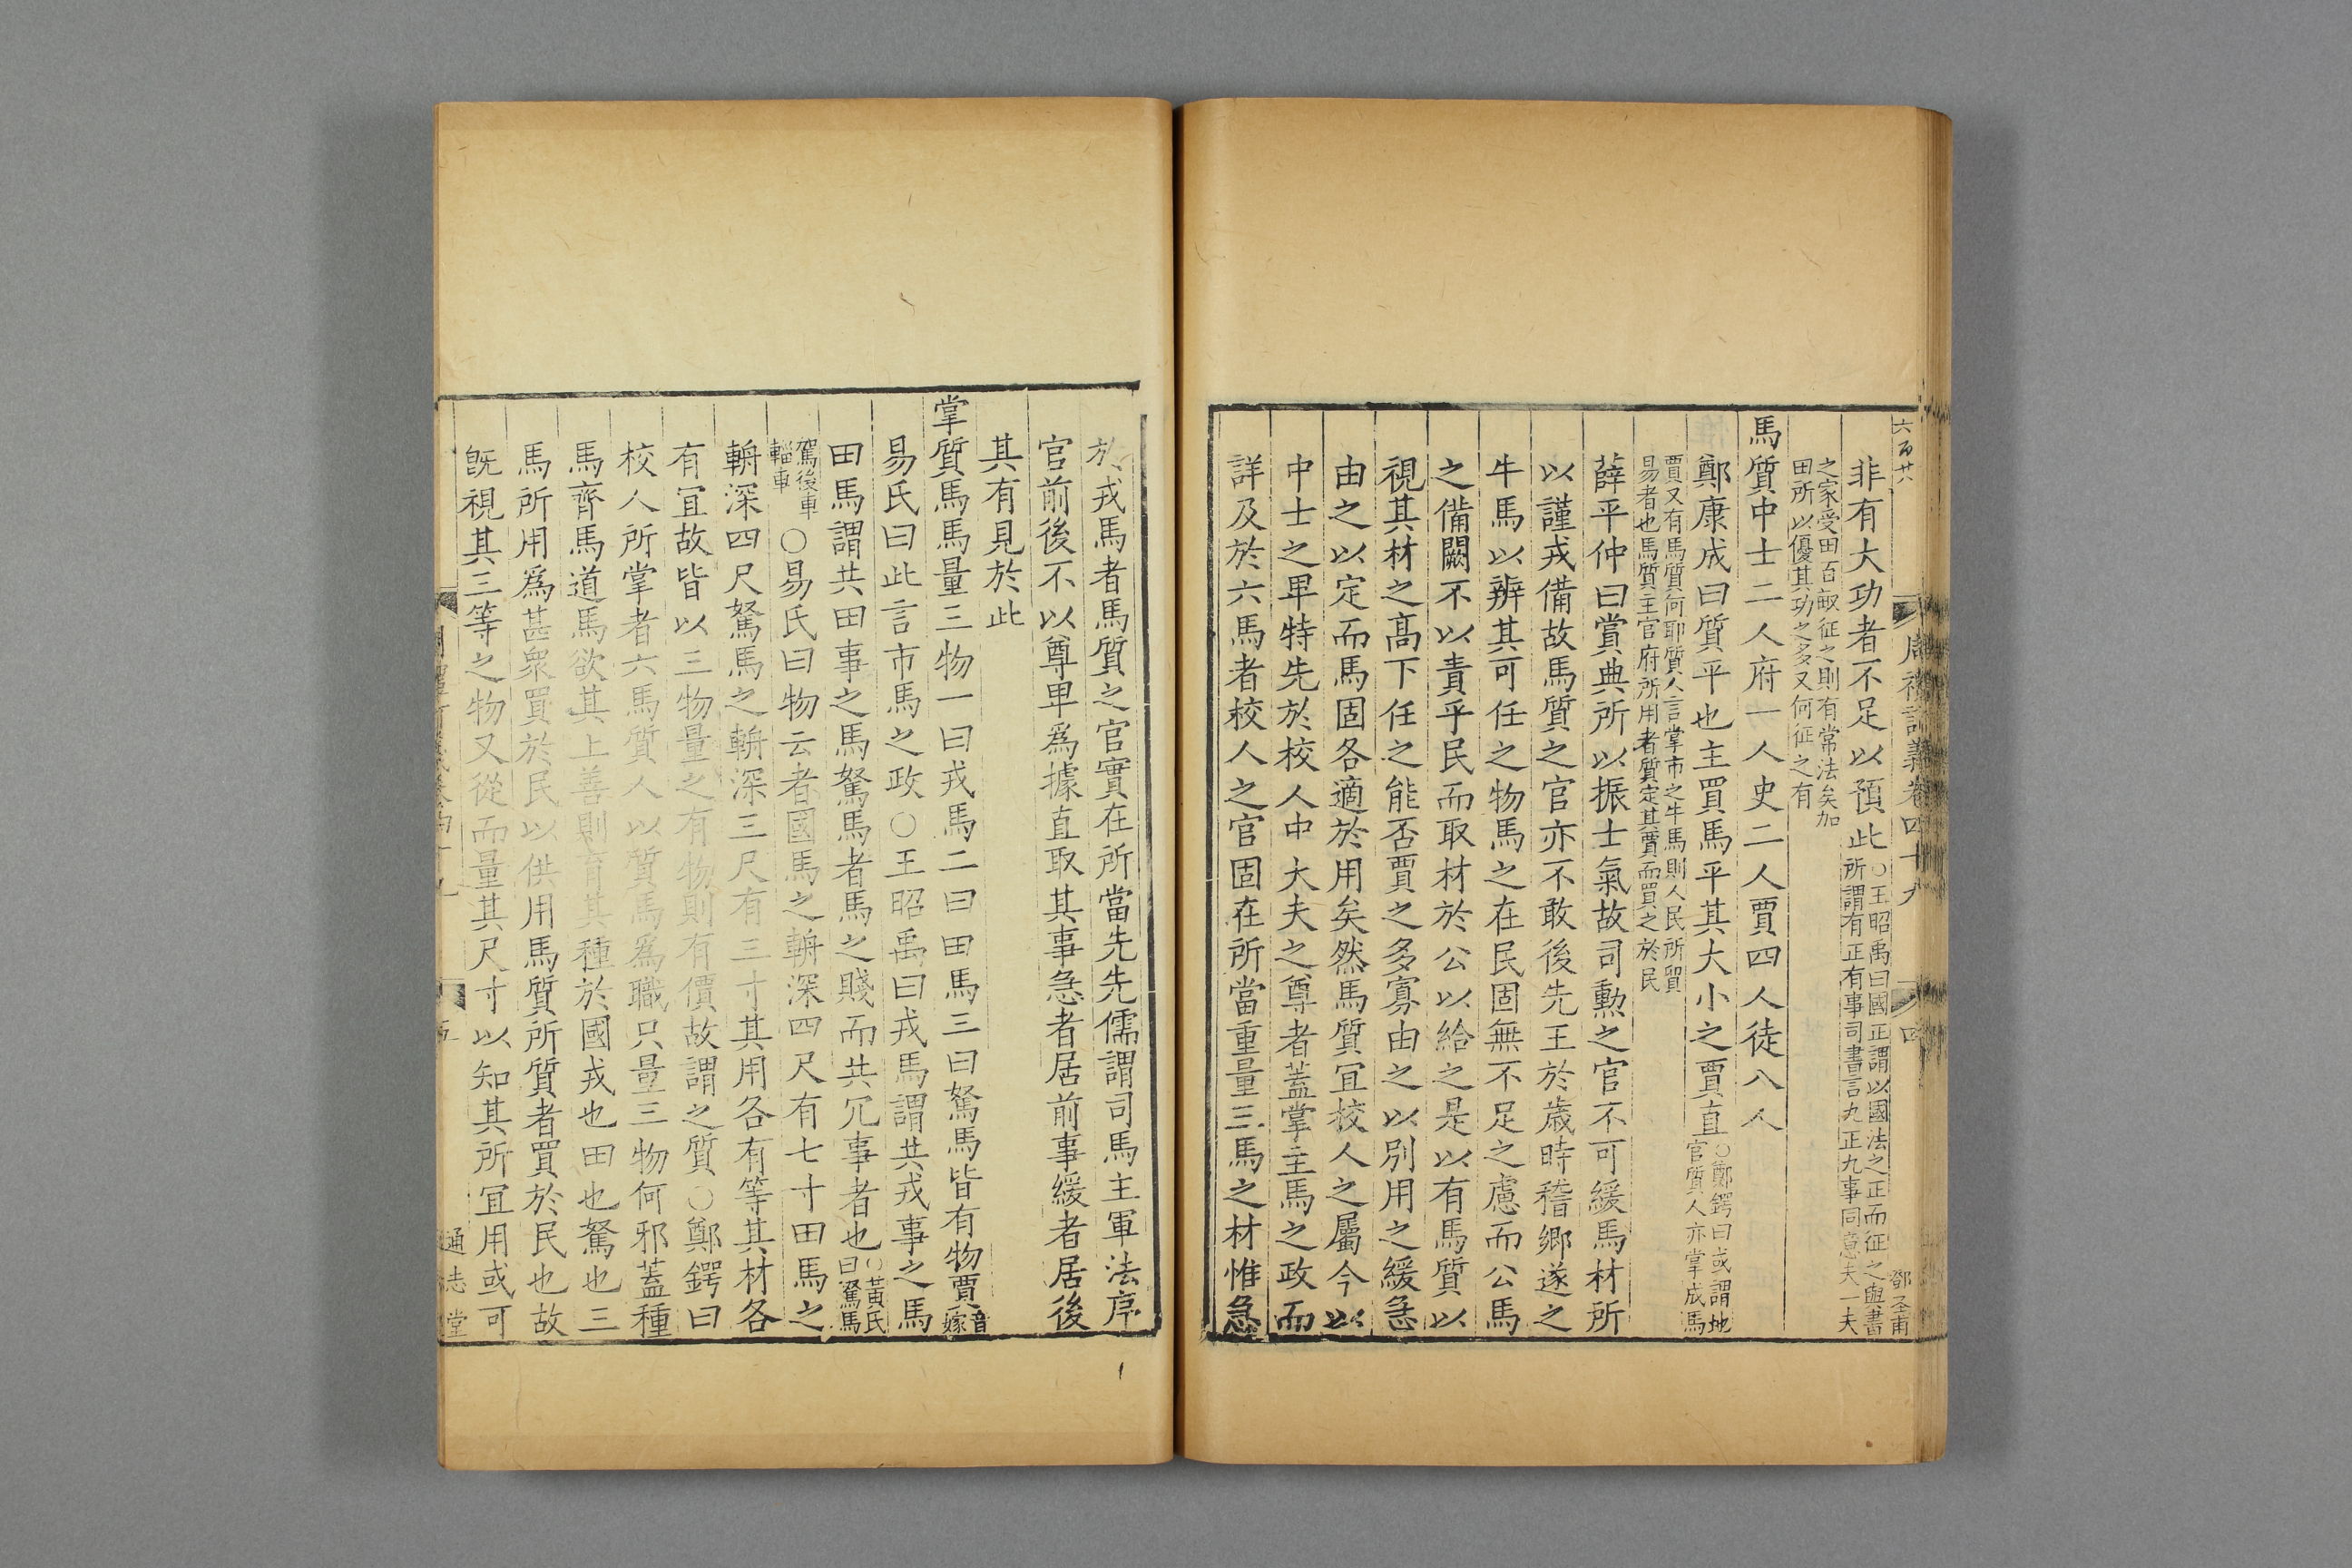 六百廿八
周禮訂義卷四十九
四
鄧圣甫
非有大功者不足以預此○王昭禹曰國正謂以國法之正而征之與書
所謂有正有事司書言九正九事同意夫一夫
之家受田百畝征之則有常法矣加
田所以優其功之多又何征之有
馬質中士二人府一人史二人賈四人徒八人
鄭康成曰質平也主買馬平其大小之賈直○鄭鍔曰或謂地
官質人亦掌成馬
賈又有馬質何耶質人言掌市之牛馬則人民所貿
易者也馬質主官府所用者質定其賈而買之於民
薛平仲曰賞典所以振士氣故司勲之官不可緩馬材所
以謹戎備故馬質之官亦不敢後先王於歳時稽鄉遂之
牛馬以辨其可任之物馬之在民固無不足之慮而公馬
之備闕不以責乎民而取材於公以給之是以有馬質以
視其材之髙下任之能否賈之多寡由之以別用之緩急
由之以定而馬固各適於用矣然馬質冝校人之屬今以
中士之卑特先於校人中大夫之尊者蓋掌主馬之政而
詳及於六馬者校人之官固在所當重量三馬之材惟急
於戎馬者馬質之官實在所當先先儒謂司馬主軍法序
官前後不以尊卑爲據直取其事急者居前事緩者居後
其有見於此
掌質馬馬量三物一曰戎馬二曰田馬三曰駑馬皆有物賈音
嫁
易氏曰此言市馬之政○王昭禹曰戎馬謂共戎事之馬
田馬謂共田事之馬駑馬者馬之賤而共冗事者也○黃氏
曰駑馬
駕後車
輜車○易氏曰物云者國馬之輈深四尺有七寸田馬之
輈深四尺駑馬之輈深三尺有三寸其用各有等其材各
有冝故皆以三物量之有物則有價故謂之質○鄭鍔曰
校人所掌者六馬質人以質馬爲職只量三物何邪蓋種
馬齊馬道馬欲其上善則育其種於國戎也田也駑也三
馬所用爲甚衆買於民以供用馬質所質者買於民也故
旣視其三等之物又從而量其尺寸以知其所冝用或可
五
通志堂